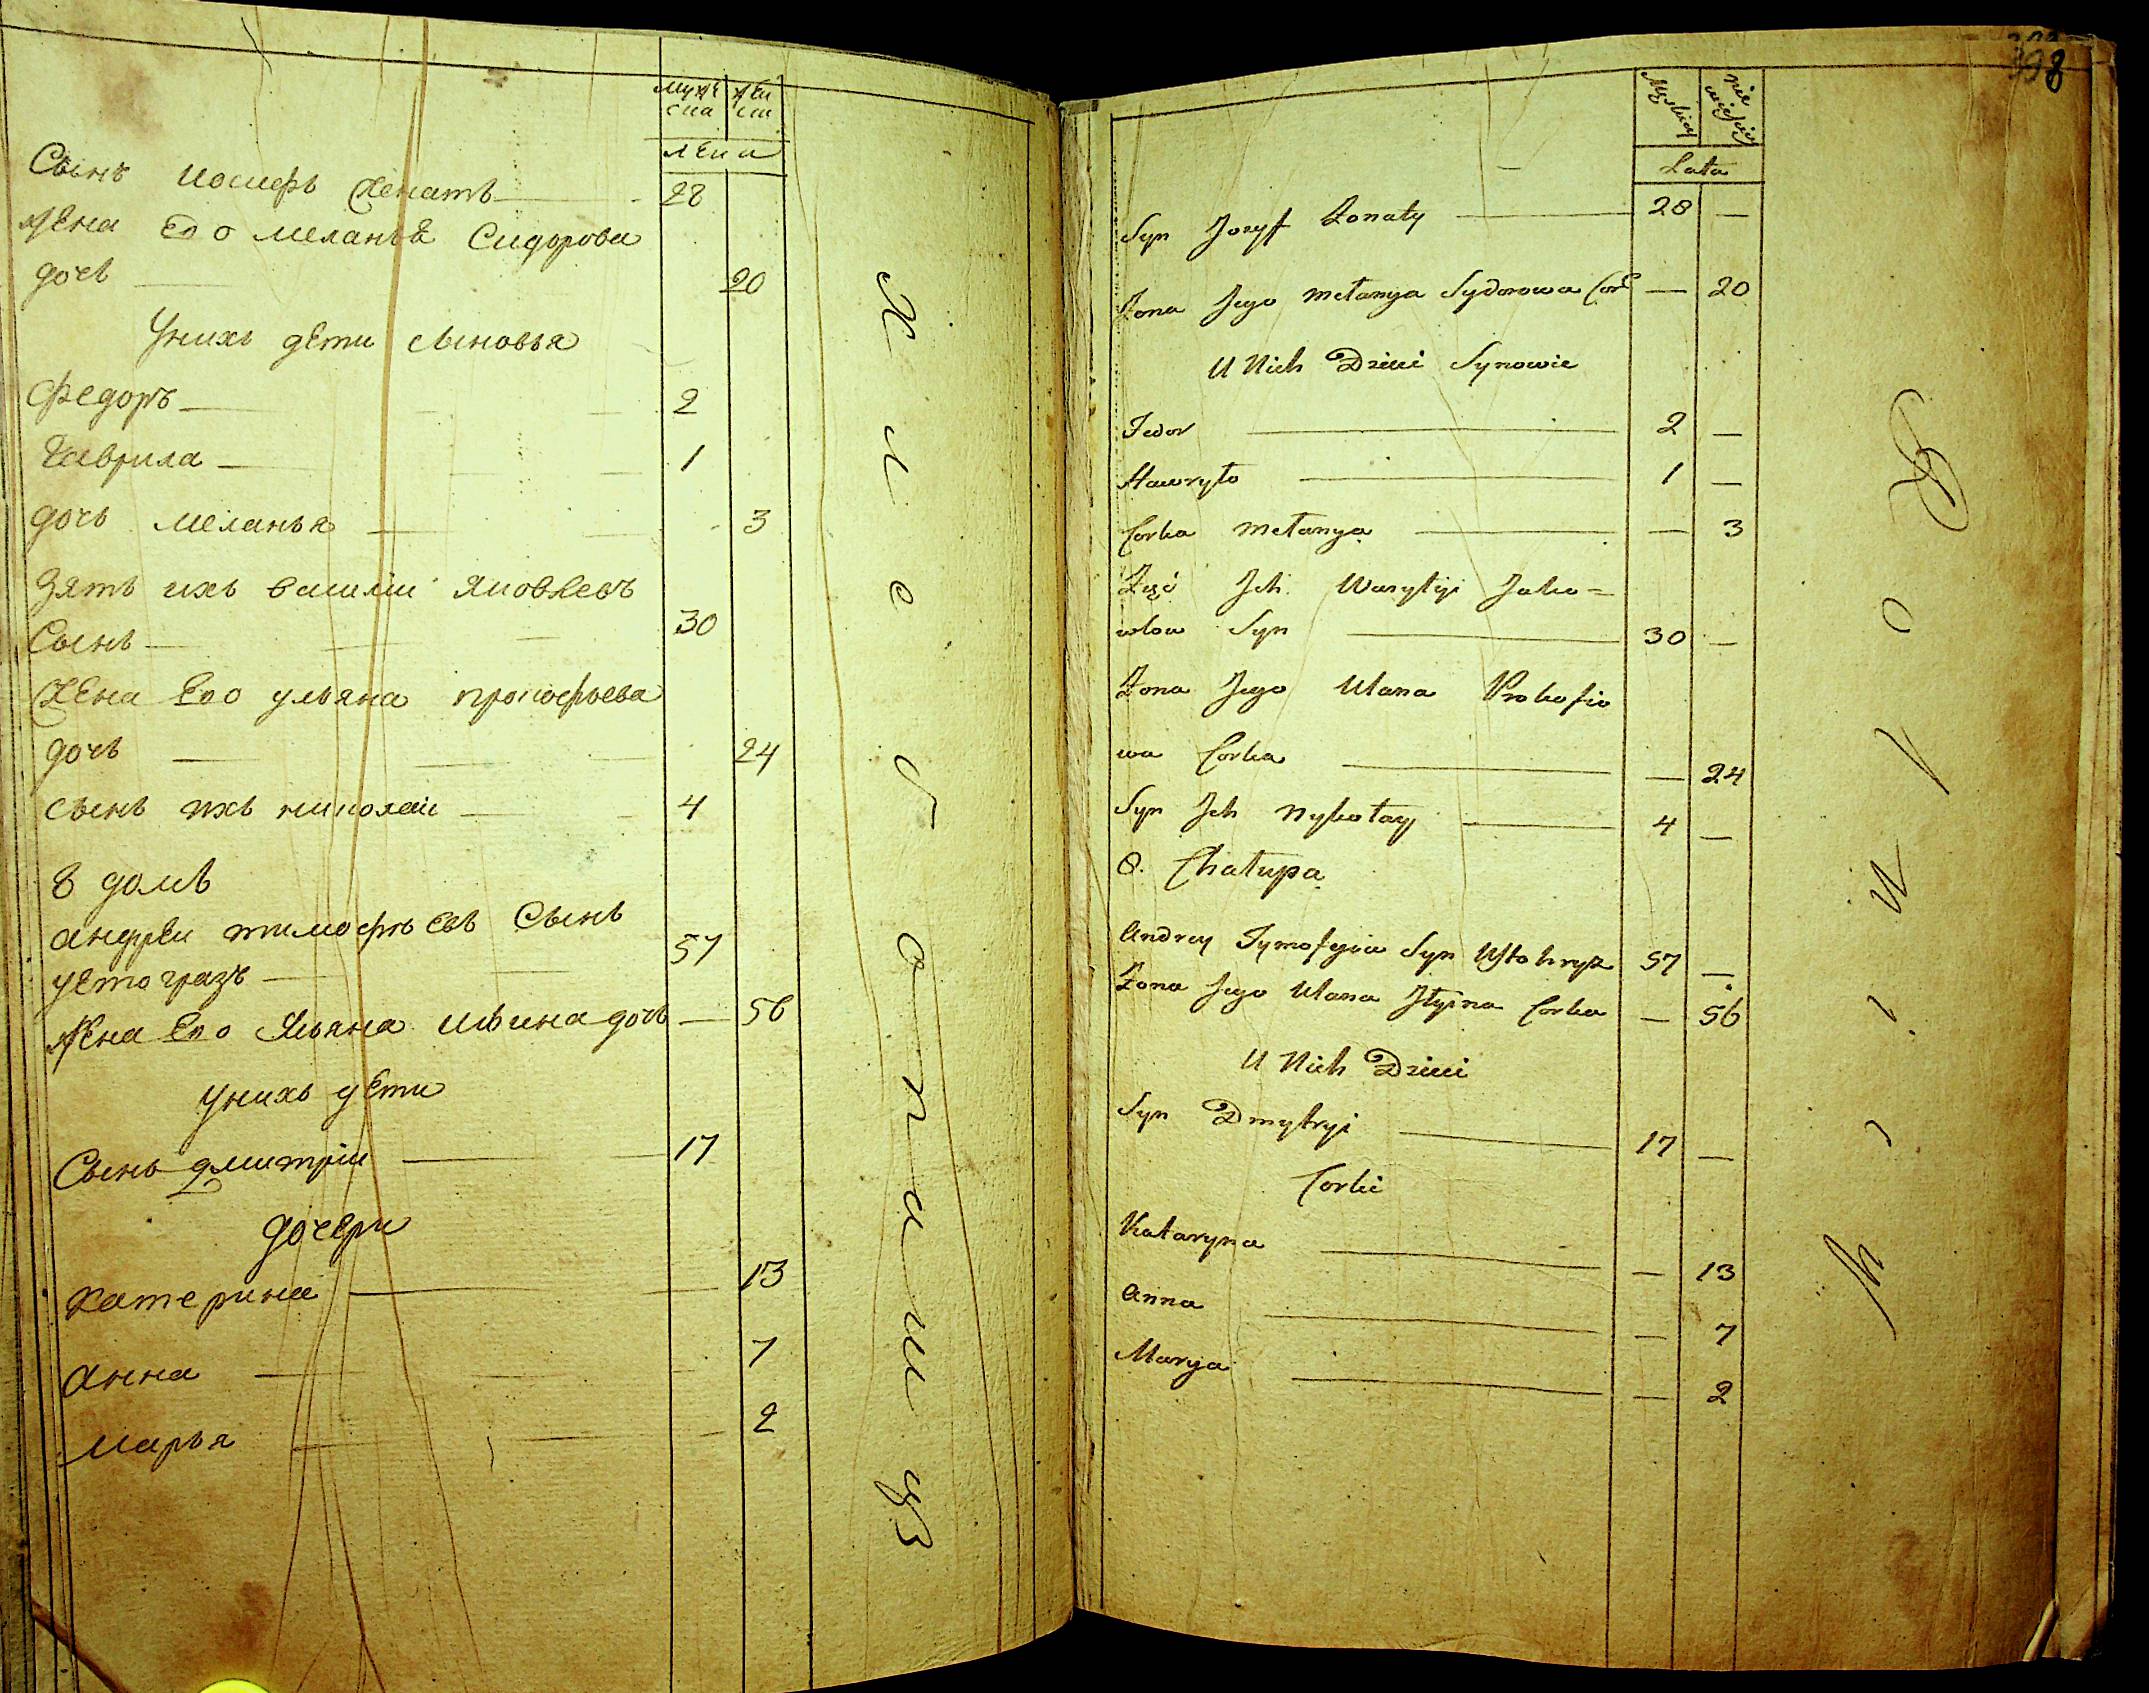 мужс женс
ска ска
лѣта
Сынъ иосифъ женатъ 28
жена Его меланья Сидорова
дочь 20
Унихъ дѣти сыновья
Федоръ 2
Гаврила 1
дочь меланья 3
Зять ихъ василій Яковлевъ
Сынъ 30
жена Его ульяна прокофьева
дочь 24
сынъ ихъ николай 4
8 домъ
андрѣй тимофѣевъ Сынъ
устогразъ 57
жена Его Ульяна ильина дочь 56
унихъ дѣти
Сынъ дмитрій 17
дочери
катерина 13
анна 7
Марья 2
398
Męskiey Niewieściey
Lata
Syn Jozyf Żonaty 28 —
Żona Jego Mełanya Sydorowa Cor. — 20
U Nich Dzieci Synowie
Fedor 2 —
Hawryło 1 —
Corka Mełanya — 3
Zięć Jch Wasylij Jako=
wlow Syn 30 —
Żona Jego Ulana Prokofio
wa Corka — 24
Syn Jch Nykołay 4 —
8. Chałupa
Andrey Tymofyiw Syn Ustohryz 57 —
Żona Jego Ulana Jlyina Corka — 56
U Nich Dzieci
Syn Dmytryi 17 —
Corki
Kataryna — 13
Anna — 7
Marya — 2